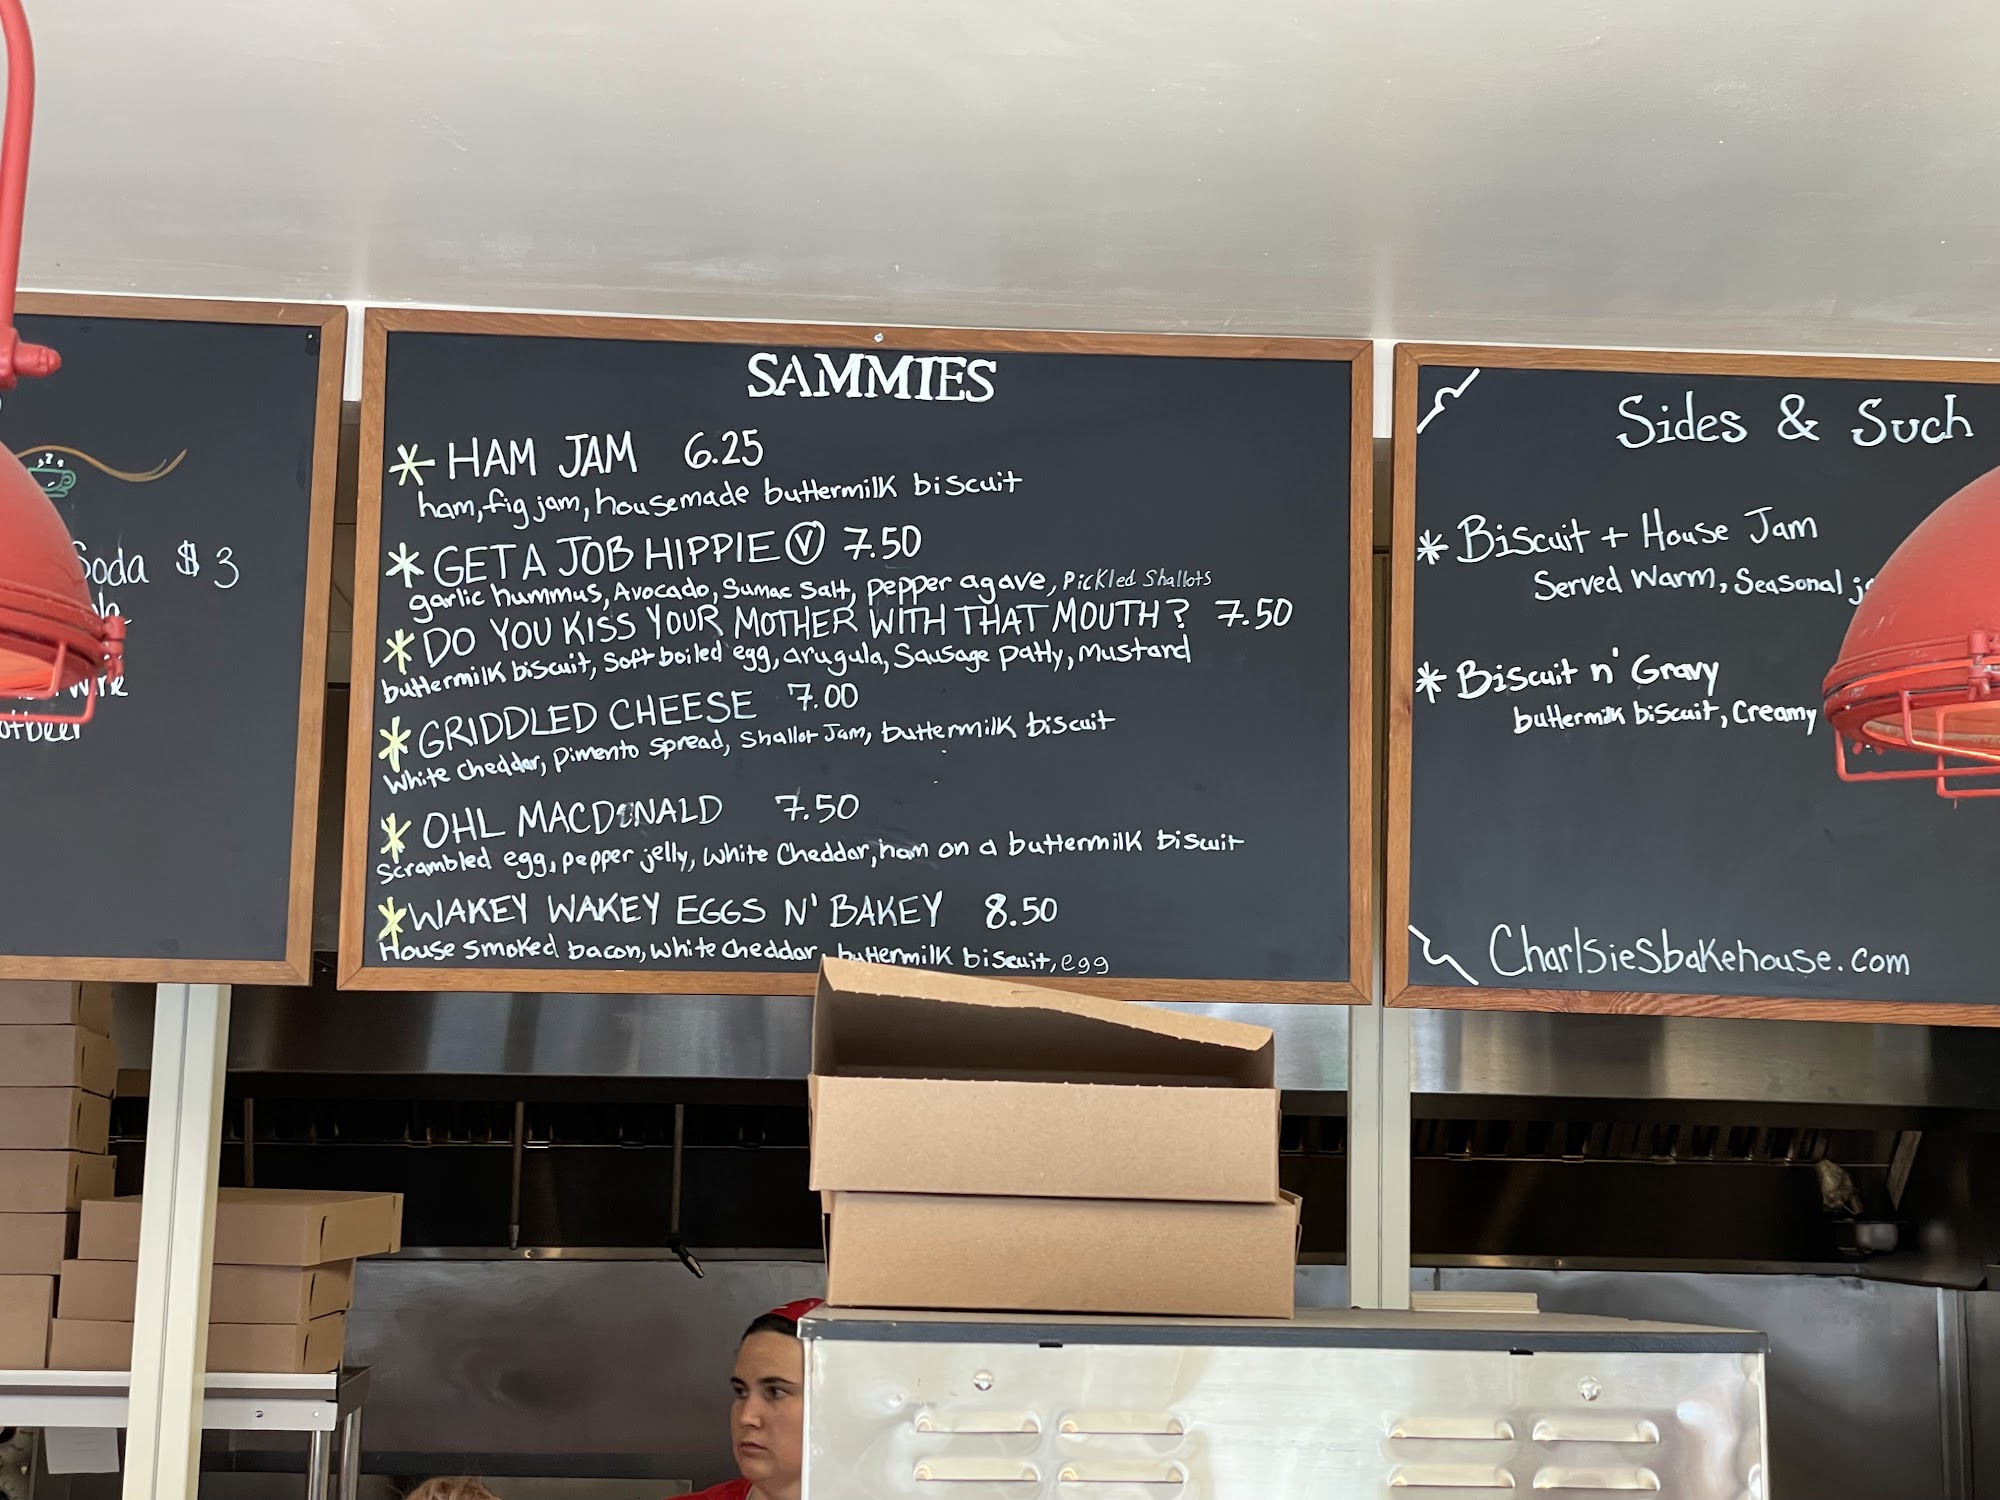 Soda $3
SAMMIES
HAM JAM 6.25
ham, fig jam, housemade buttermilk biscuit
GET A JOB HIPPIE Ⓥ 7.50
garlic hummus, Avocado, Sumac Salt, pepper agave, Pickled Shallots
DO YOU KISS YOUR MOTHER WITH THAT MOUTH? 7.50
buttermilk biscuit, Soft boiled egg, arugula, Sausage patty, Mustard
GRIDDLED CHEESE 7.00
White Cheddar, Pimento Spread, Shallot Jam, buttermilk biscuit
OHL MACDONALD 7.50
Scrambled egg, pepper jelly, White Cheddar, ham on a buttermilk biscuit
WAKEY WAKEY EGGS N' BAKEY 8.50
House Smoked bacon, White Cheddar, buttermilk biscuit, egg
Sides & Such
Biscuit + House Jam
Served Warm, Seasonal
Biscuit n' Gravy
buttermilk biscuit, Creamy
Charlsiesbakehouse.com